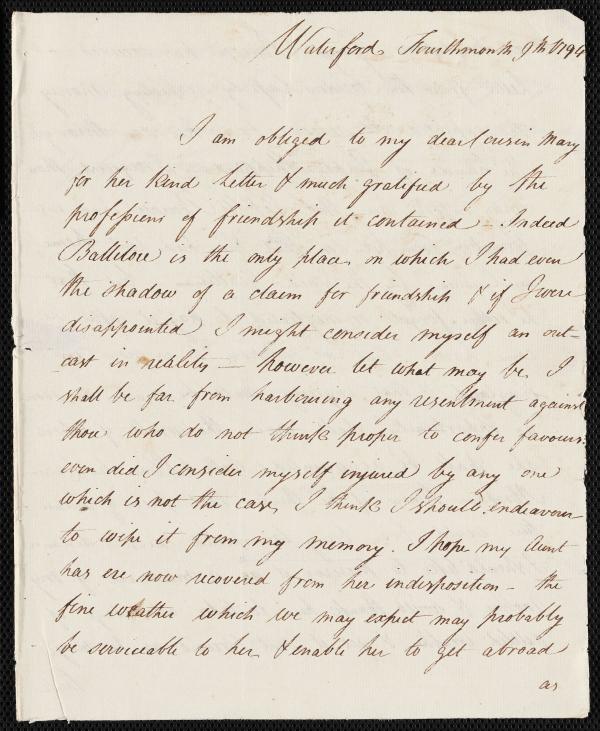 Waterford Fourthmonth 9th 1794
I am obliged to my dear Cousin Mary
for her kind Letter & much gratified by the
professions of friendship it contained Indeed
Ballitore is the only place on which I had even
the shadow of a claim for friendship & if I were
disappointed I might consider myself an out-
cast in reality — however let what may be I
shall be far from harbouring any resentment against
those who do not think proper to confer favours.
even did I consider myself injured by any one
which is not the case, I think I should endeavour
to wipe it from my memory. I hope my Aunt
has ere now recovered from her indisposition - the
fine weather which we may expect may probably
be serviceable to her & enable her to get abroad
as